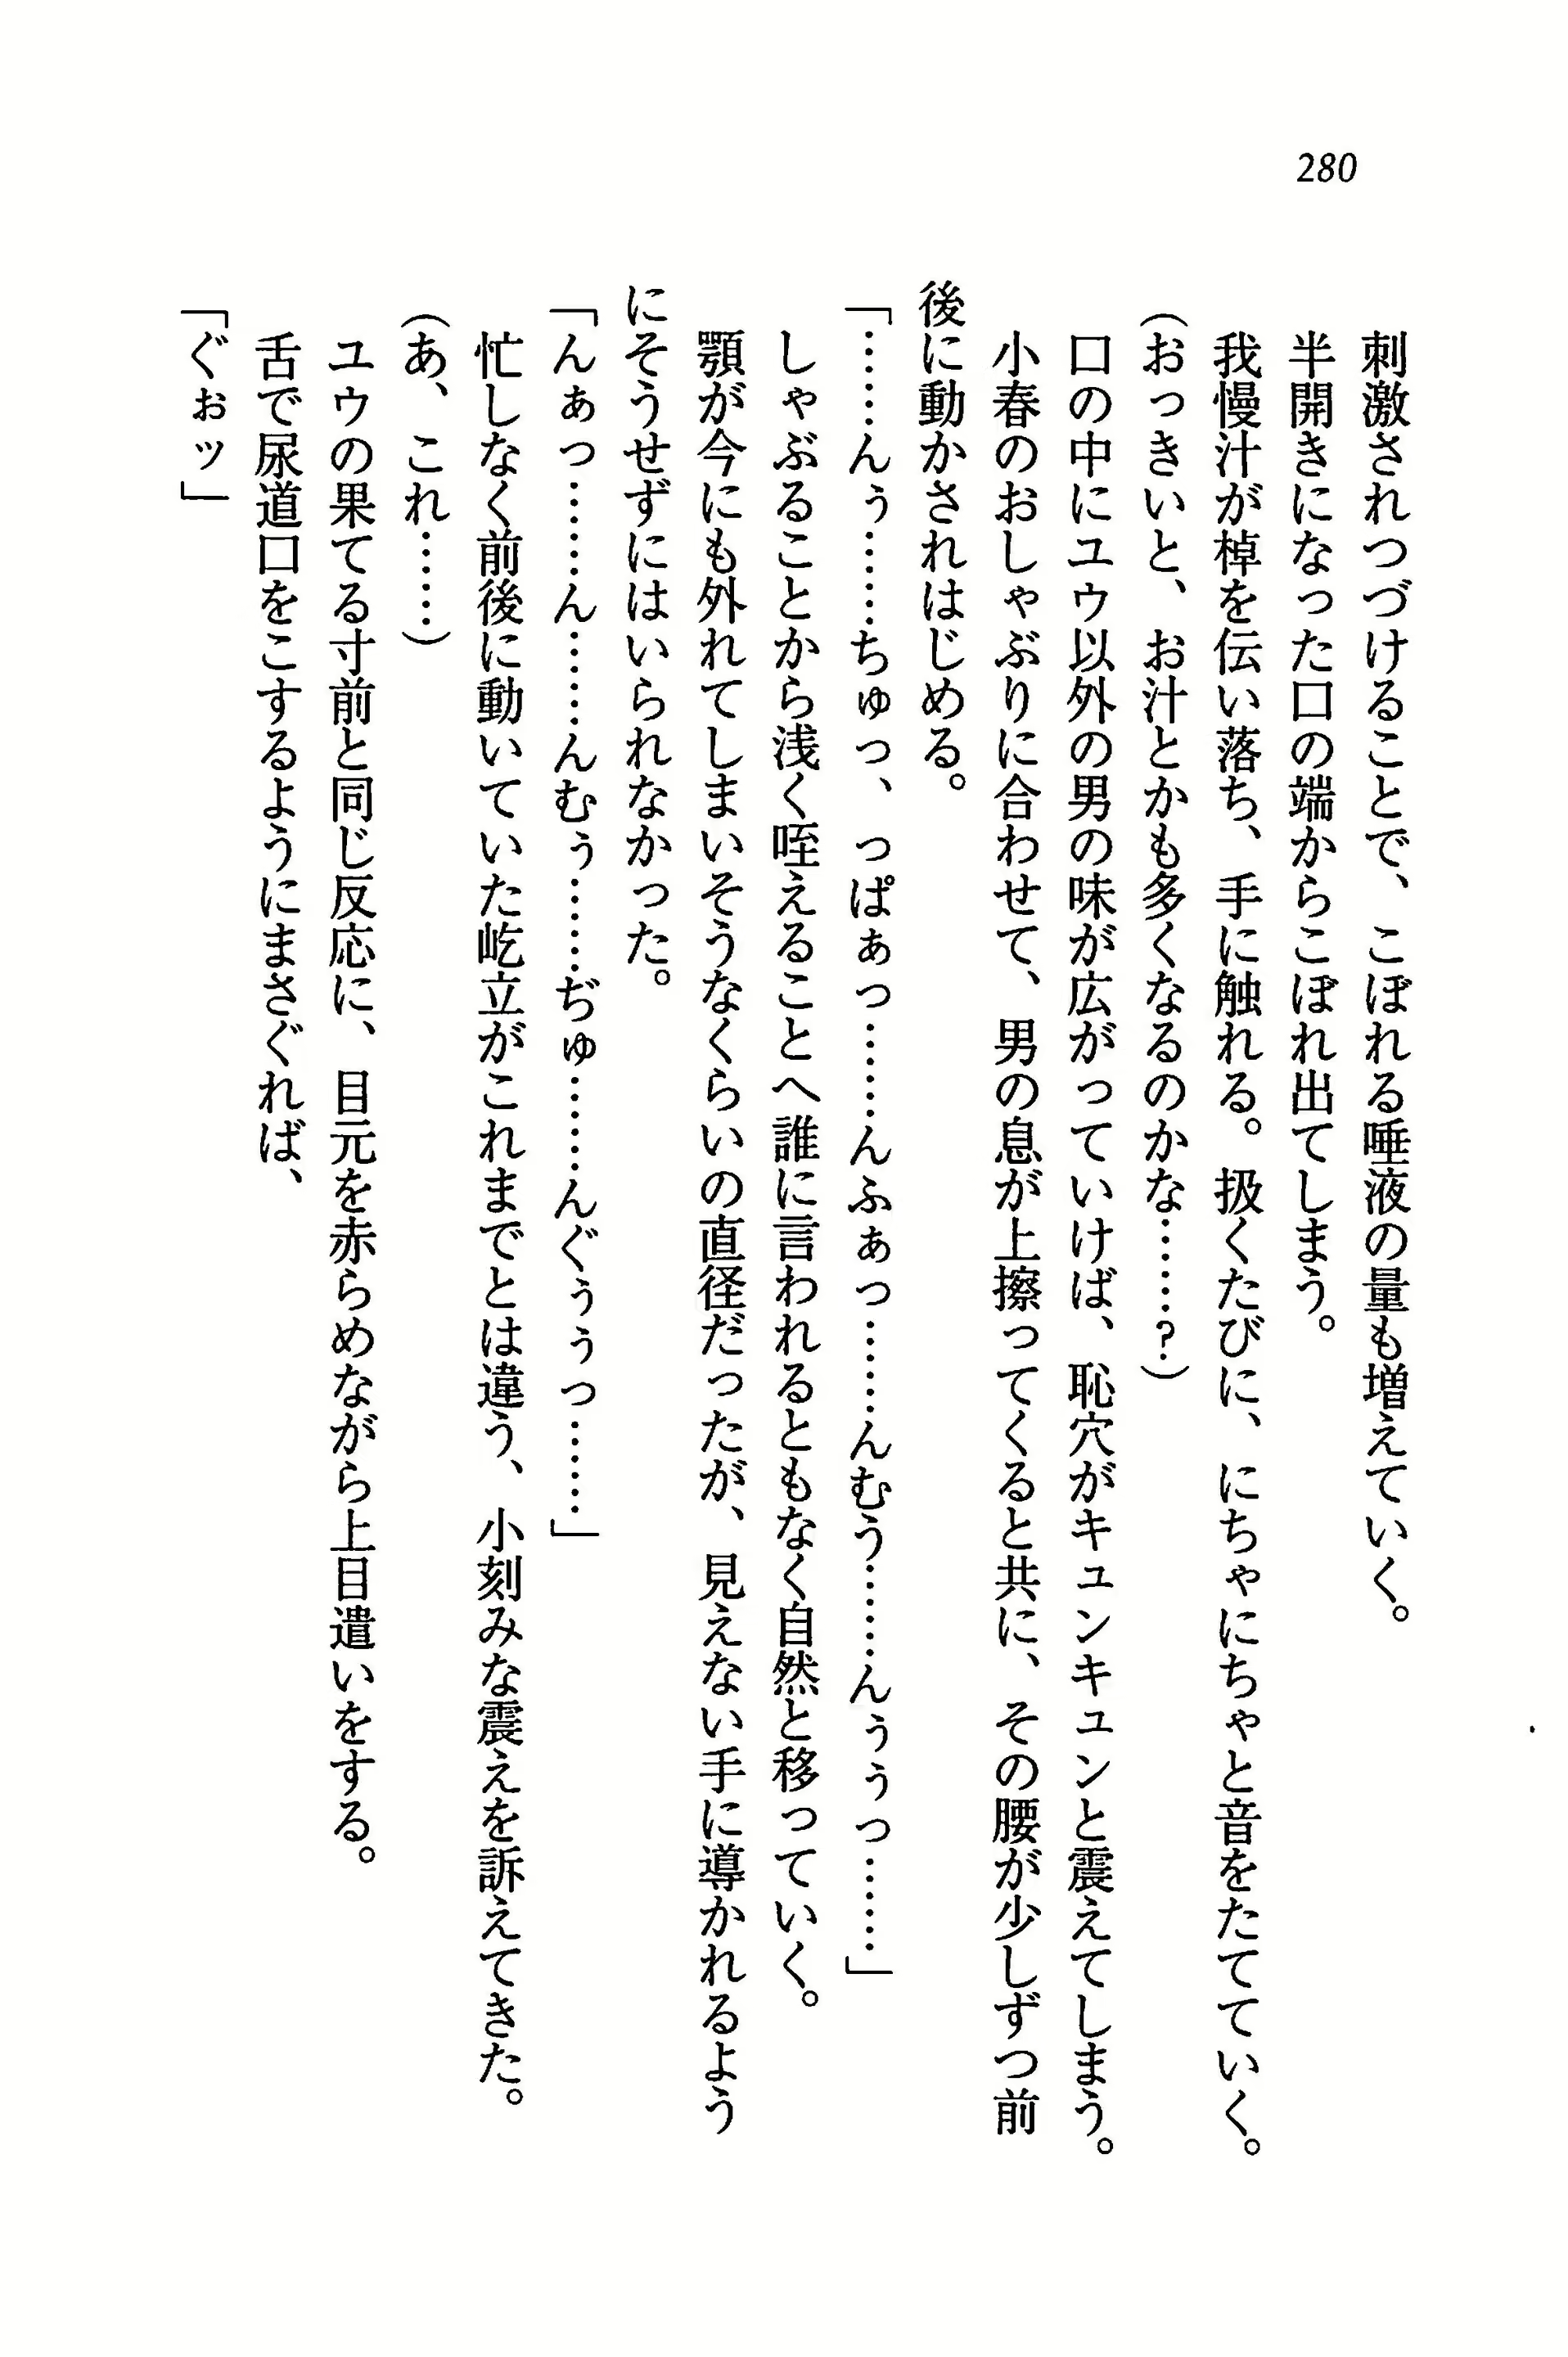 280
刺激されつづけることで、こぼれる唾液の量も増えていく。
半開きになった口の端からこぼれ出てしまう。
我慢汁が棹を伝い落ち、手に触れる。扱くたびに、にちゃにちゃと音をたてていく。
(おっきいと、お汁とかも多くなるのかな……?)
口の中にユウ以外の男の味が広がっていけば、恥穴がキュンキュンと震えてしまう。
小春のおしゃぶりに合わせて、男の息が上擦ってくると共に、その腰が少しずつ前
後に動かされはじめる。
「……んぅ……ちゅっ、っぱぁっ……んふぁっ……んむう……んぅぅっ……」
しゃぶることから浅く咥えることへ誰に言われるともなく自然と移っていく。
顎が今にも外れてしまいそうなくらいの直径だったが、見えない手に導かれるよう
にそうせずにはいられなかった。
「んぁっ……ん……んむぅ……ぢゅ……んぐぅぅっ……」
忙しなく前後に動いていた屹立がこれまでとは違う、小刻みな震えを訴えてきた。
(あ、これ……)
ユウの果てる寸前と同じ反応に、目元を赤らめながら上目遣いをする。
舌で尿道口をこするようにまさぐれば、
「ぐぉッ」